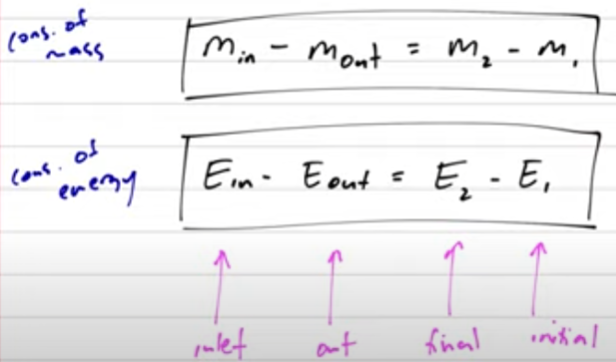 cons. of mass
m_in - m_out = m_2 - m_1
cons. of energy
E_in - E_out = E_2 - E_1
inlet out final initial